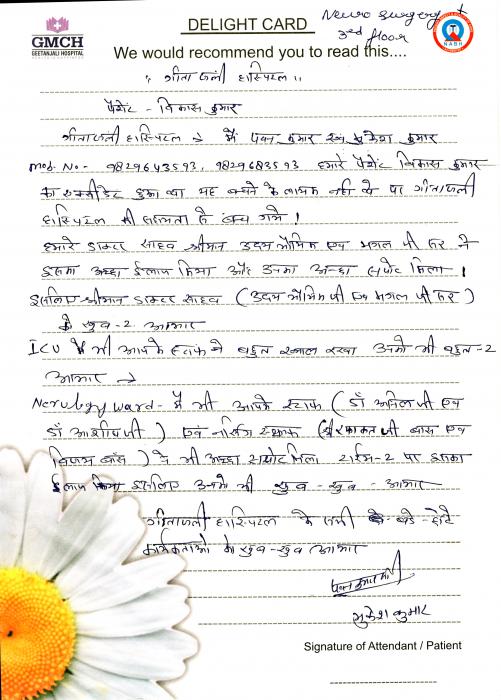 GMCH
GEETANJALI HOSPITAL
DELIGHT CARD
Neuro surgery
3rd floor
NABH
We would recommend you to read this....
" गीतांजली हास्पिटल "
पेशेंट - विकास कुमार
गीतांजली हास्पिटल में पवन कुमार एवं मुकेश कुमार
Mob. No- 9829643593, 9829683593 हमारे पेशेंट विकास कुमार
का एक्सीडेंट हुआ था यह बचने के लायक नहीं थे पर गीतांजली
हास्पिटल की सहायता से बच गये।
हमारे डाक्टर साहब श्रीमान उदय भौमिक एवं मंगल जी सर ने
इसका अच्छा ईलाज किया और उनका अच्छा सपोट मिला।
इसलिए श्रीमान डाक्टर साहब (उदय भौमिक जी एवं मंगल जी सर)
के खुब-2 आभार
ICU में भी आपके स्टाफ ने बहुत ख्याल रखा उनको भी बहुत-2
आभार
Nerulogy ward - में भी आपके स्टाफ (डॉ अनिल जी एवं
डॉ आशीष जी) एवं नर्सिग स्टाफ ( जी बास एवं
बास) से भी अच्छा सपोट मिला टाईम-2 पर इसका
ईलाज किया इसलिए उनको भी खुब-खुब-आभार
गीतांजली हास्पिटल के सभी बडे-छोटे
कार्यकर्ताओं के खुब-खुब आभार
मुकेश कुमार
Signature of Attendant / Patient